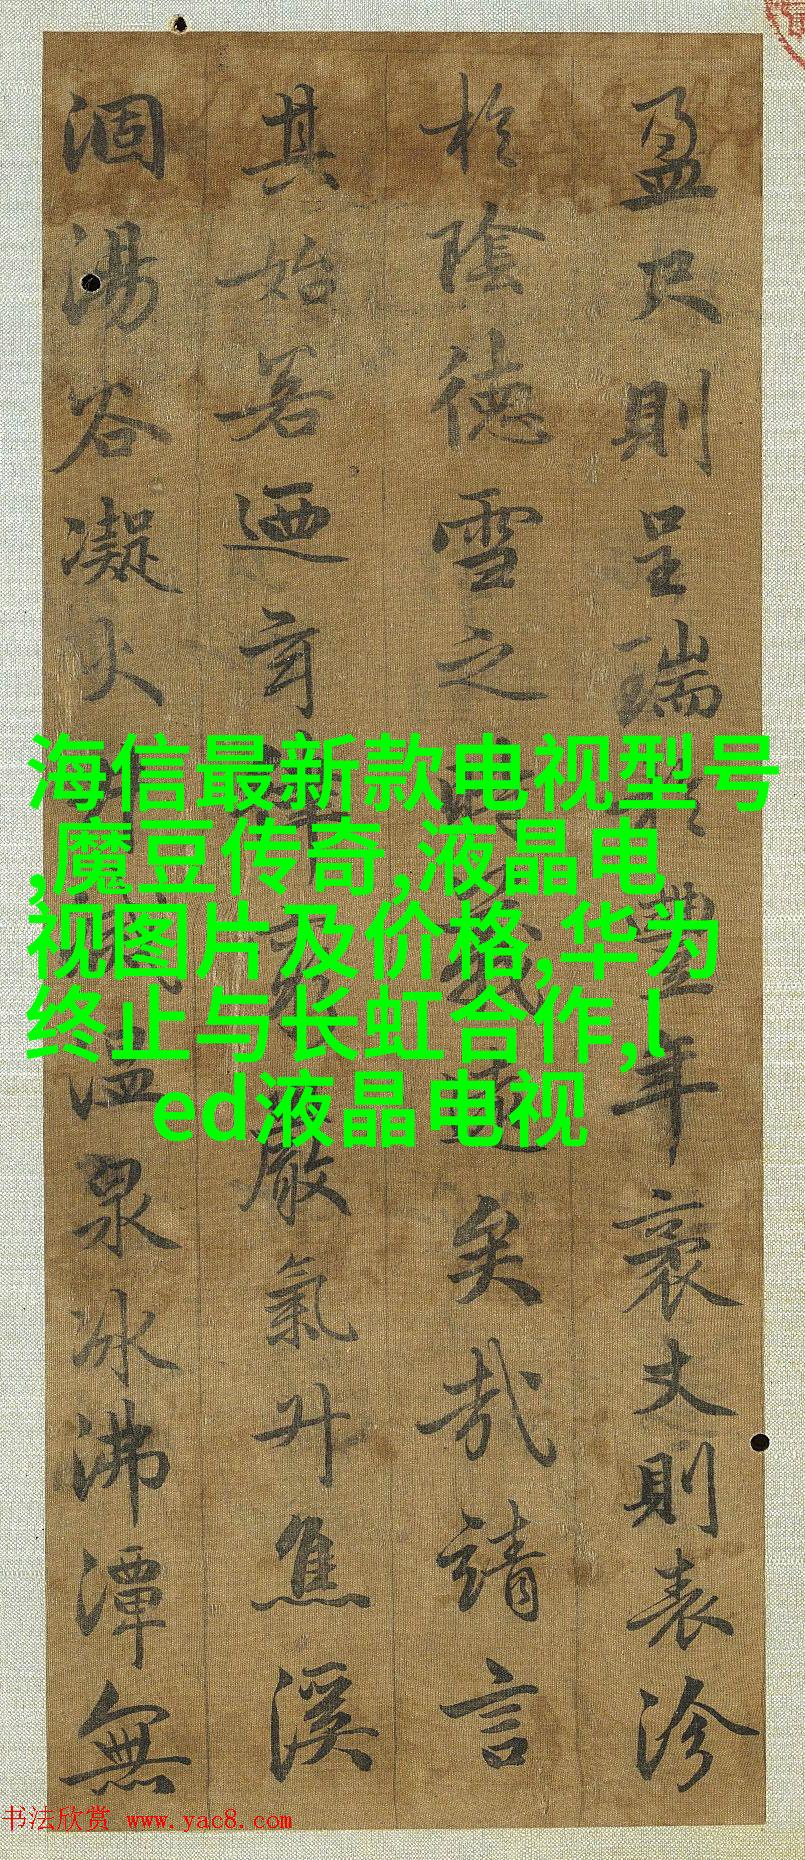 盈尺則呈瑞於豐年袤丈則表沴
於陰德雪之時義遠矣哉請言
其始若迺玄律窮嚴氣升焦溪
涸湯谷凝火井滅溫泉冰沸潭無
海信最新款电视型号
,魔豆传奇,液晶电
视图片及价格,华为
终止与长虹合作,l
ed液晶电视
书法欣赏 www.yac8.com